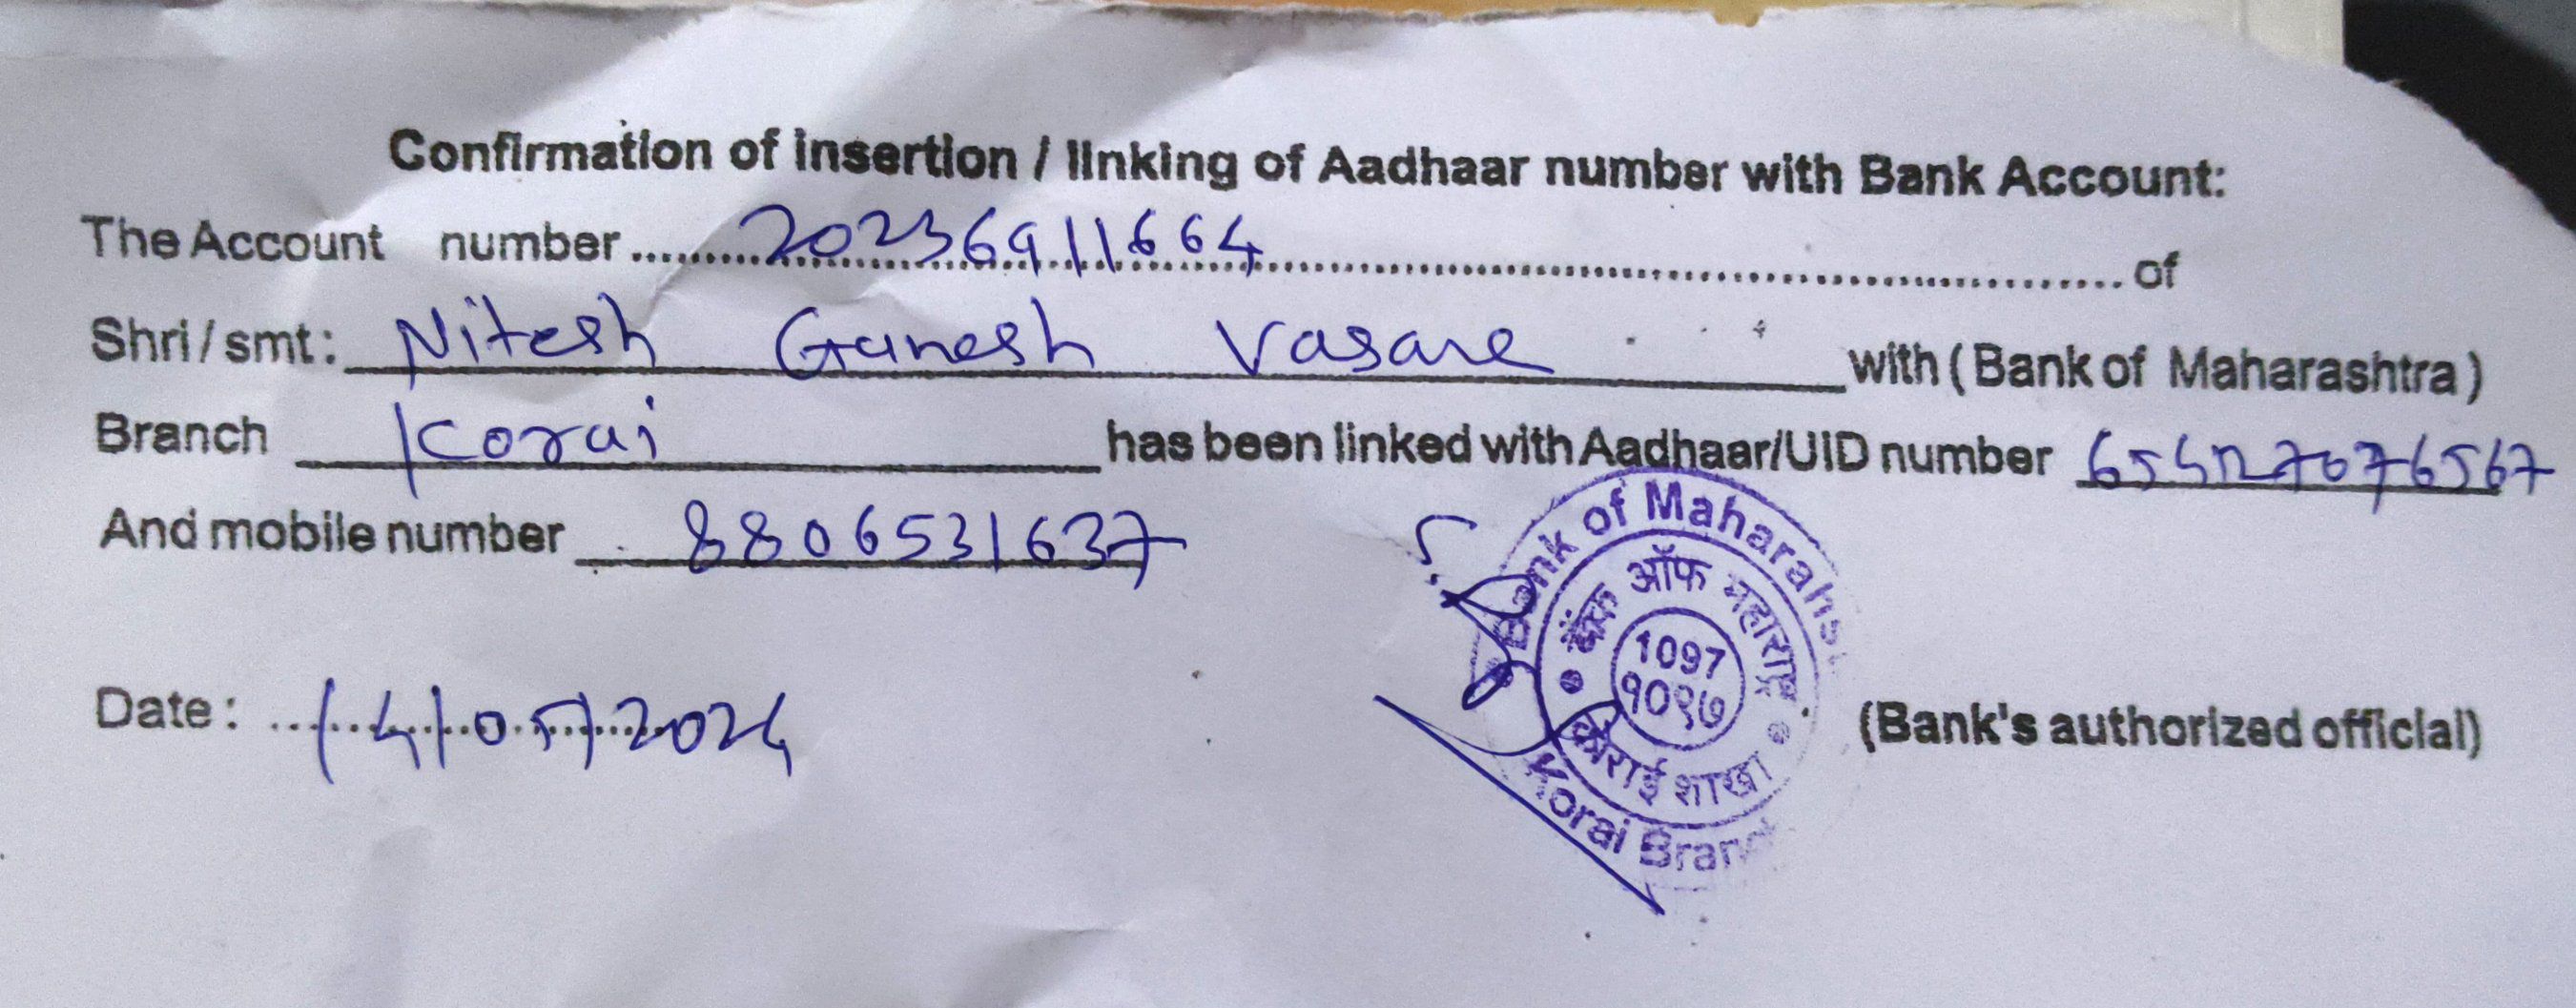 Confirmation of insertion / linking of Aadhaar number with Bank Account:
The Account number........20236911664........................of
Shri / smt: Nitesh Ganesh Vasare with ( Bank of Maharashtra )
Branch Korai has been linked with Aadhaar/UID number
And mobile number 8806531637
Bank of Maharahs
बँक ऑफ महाराष्ट्र
1097
१०९७
कोराई शाखा
Korai Bran
Date : 14/05/2024
(Bank's authorized official)